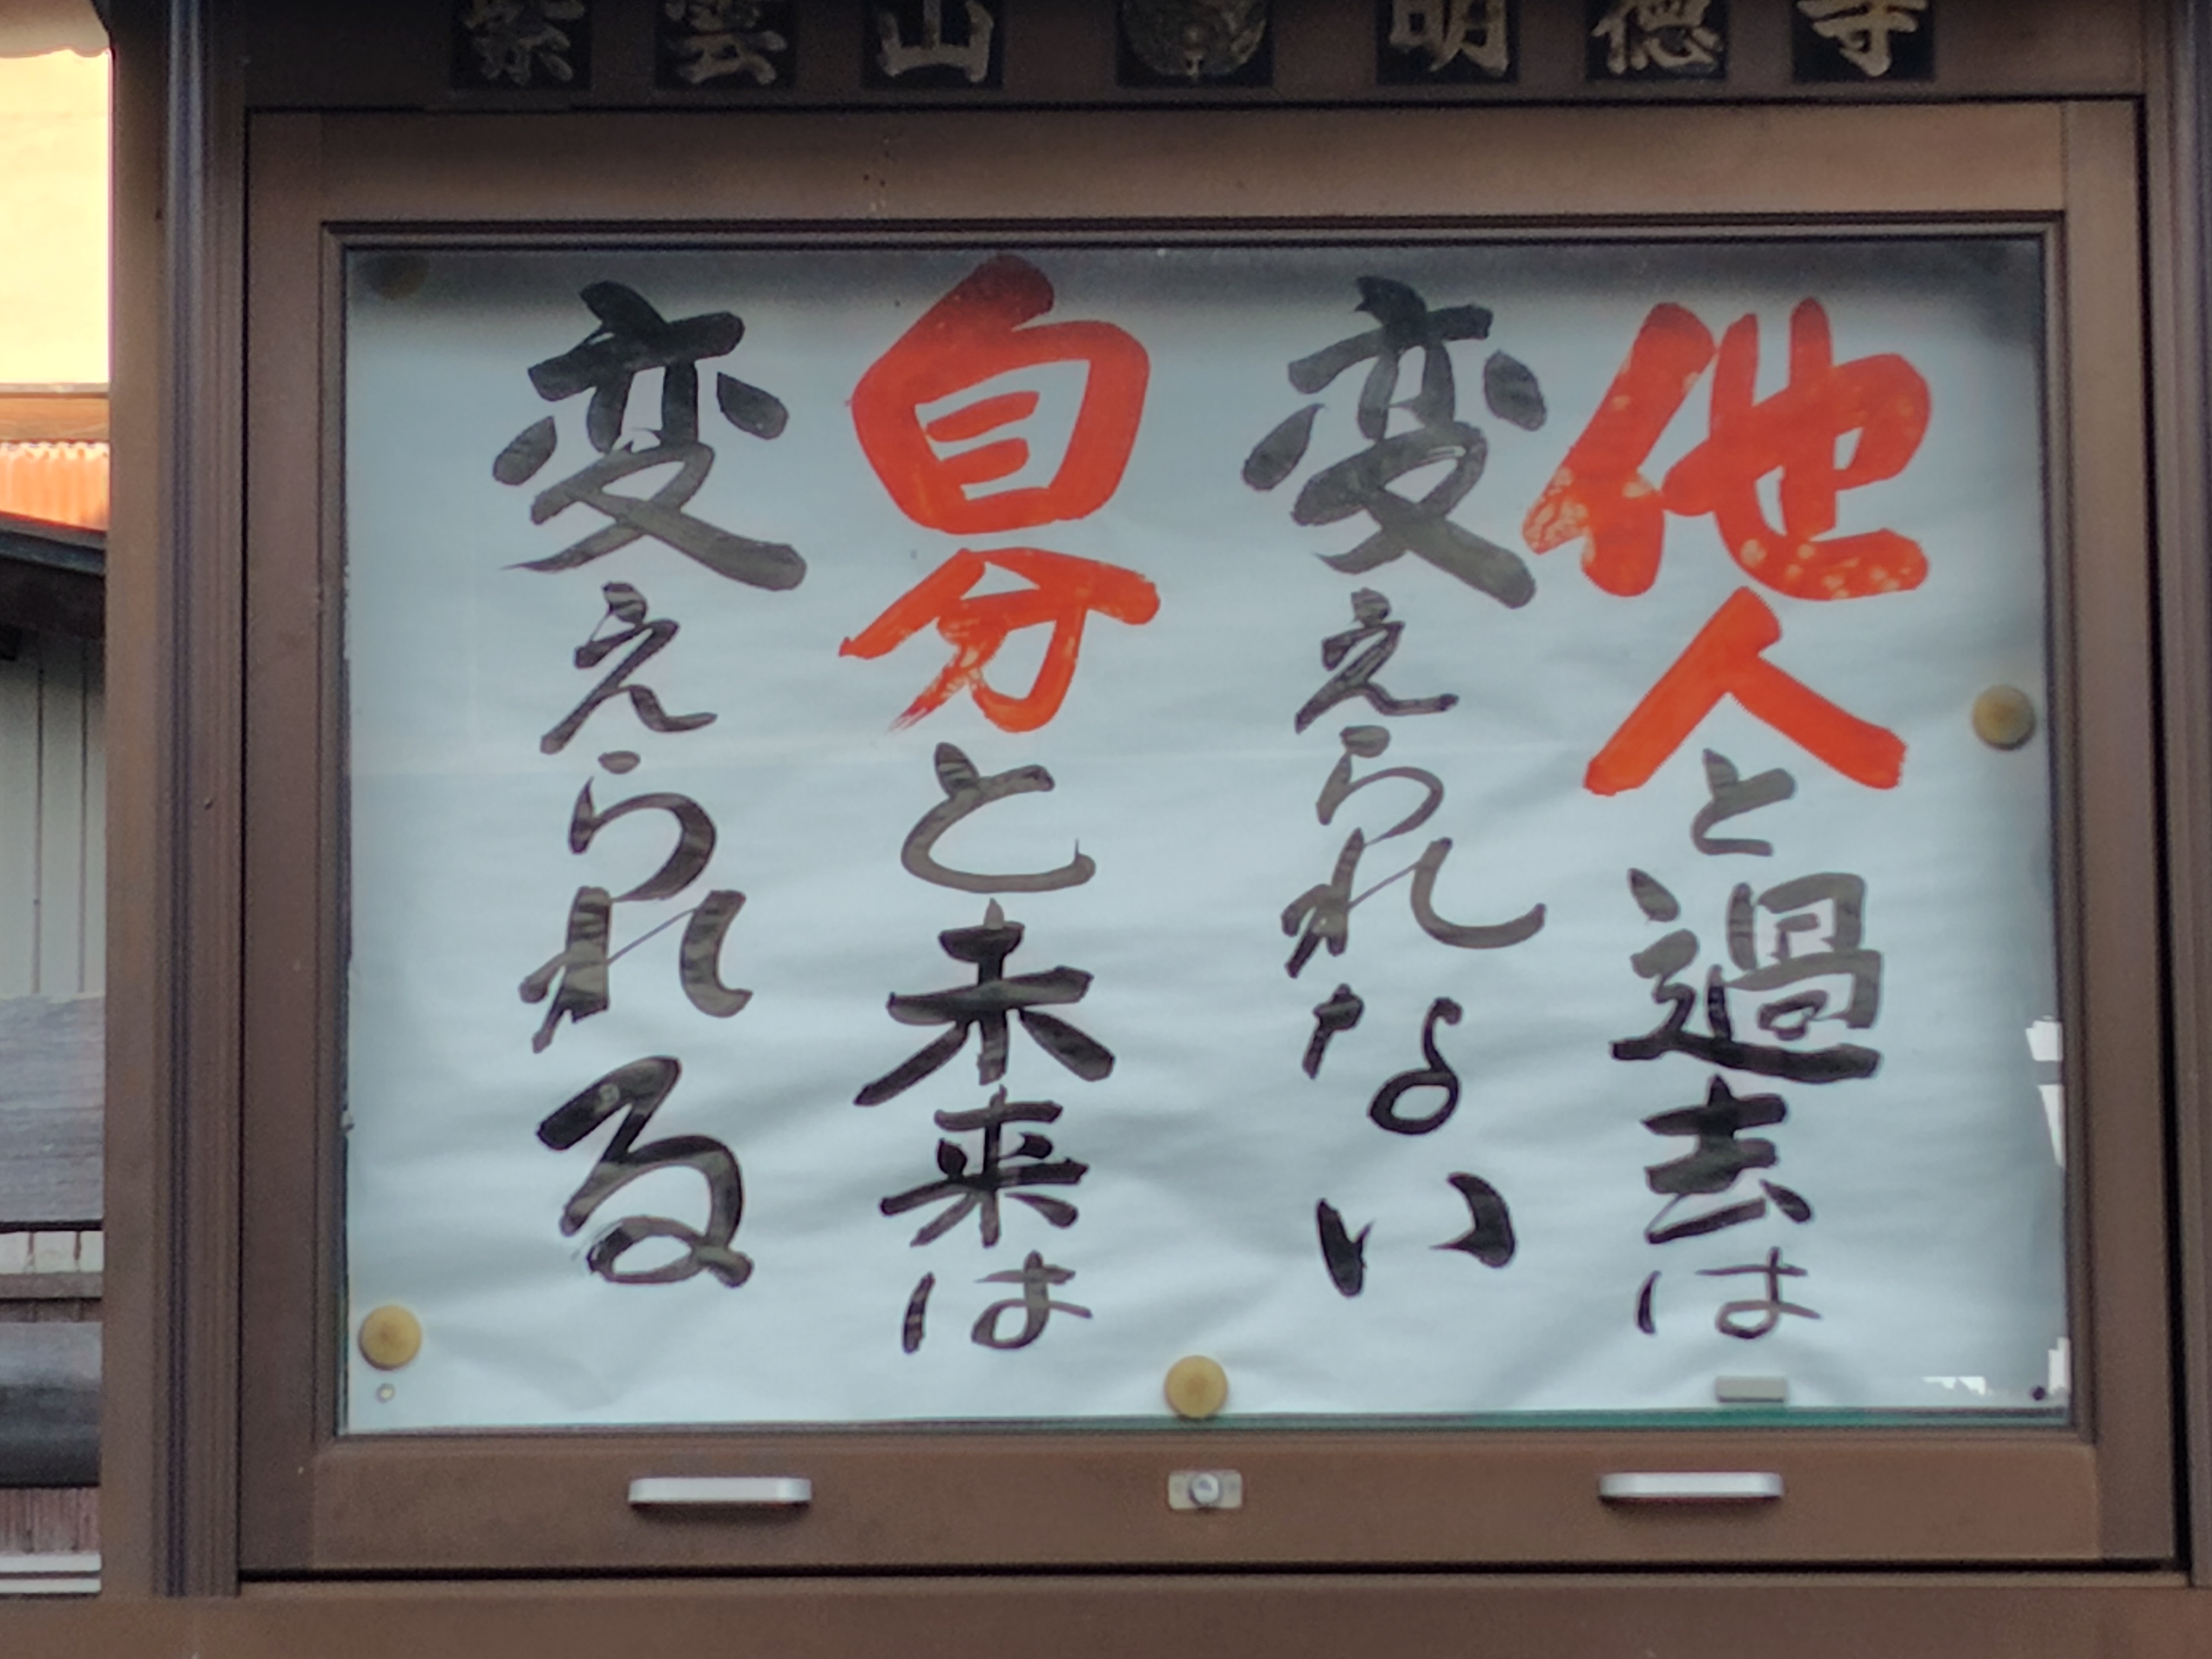 紫雲山 明徳寺
他人と過去は
変えられない
自分と未来は
変えられる